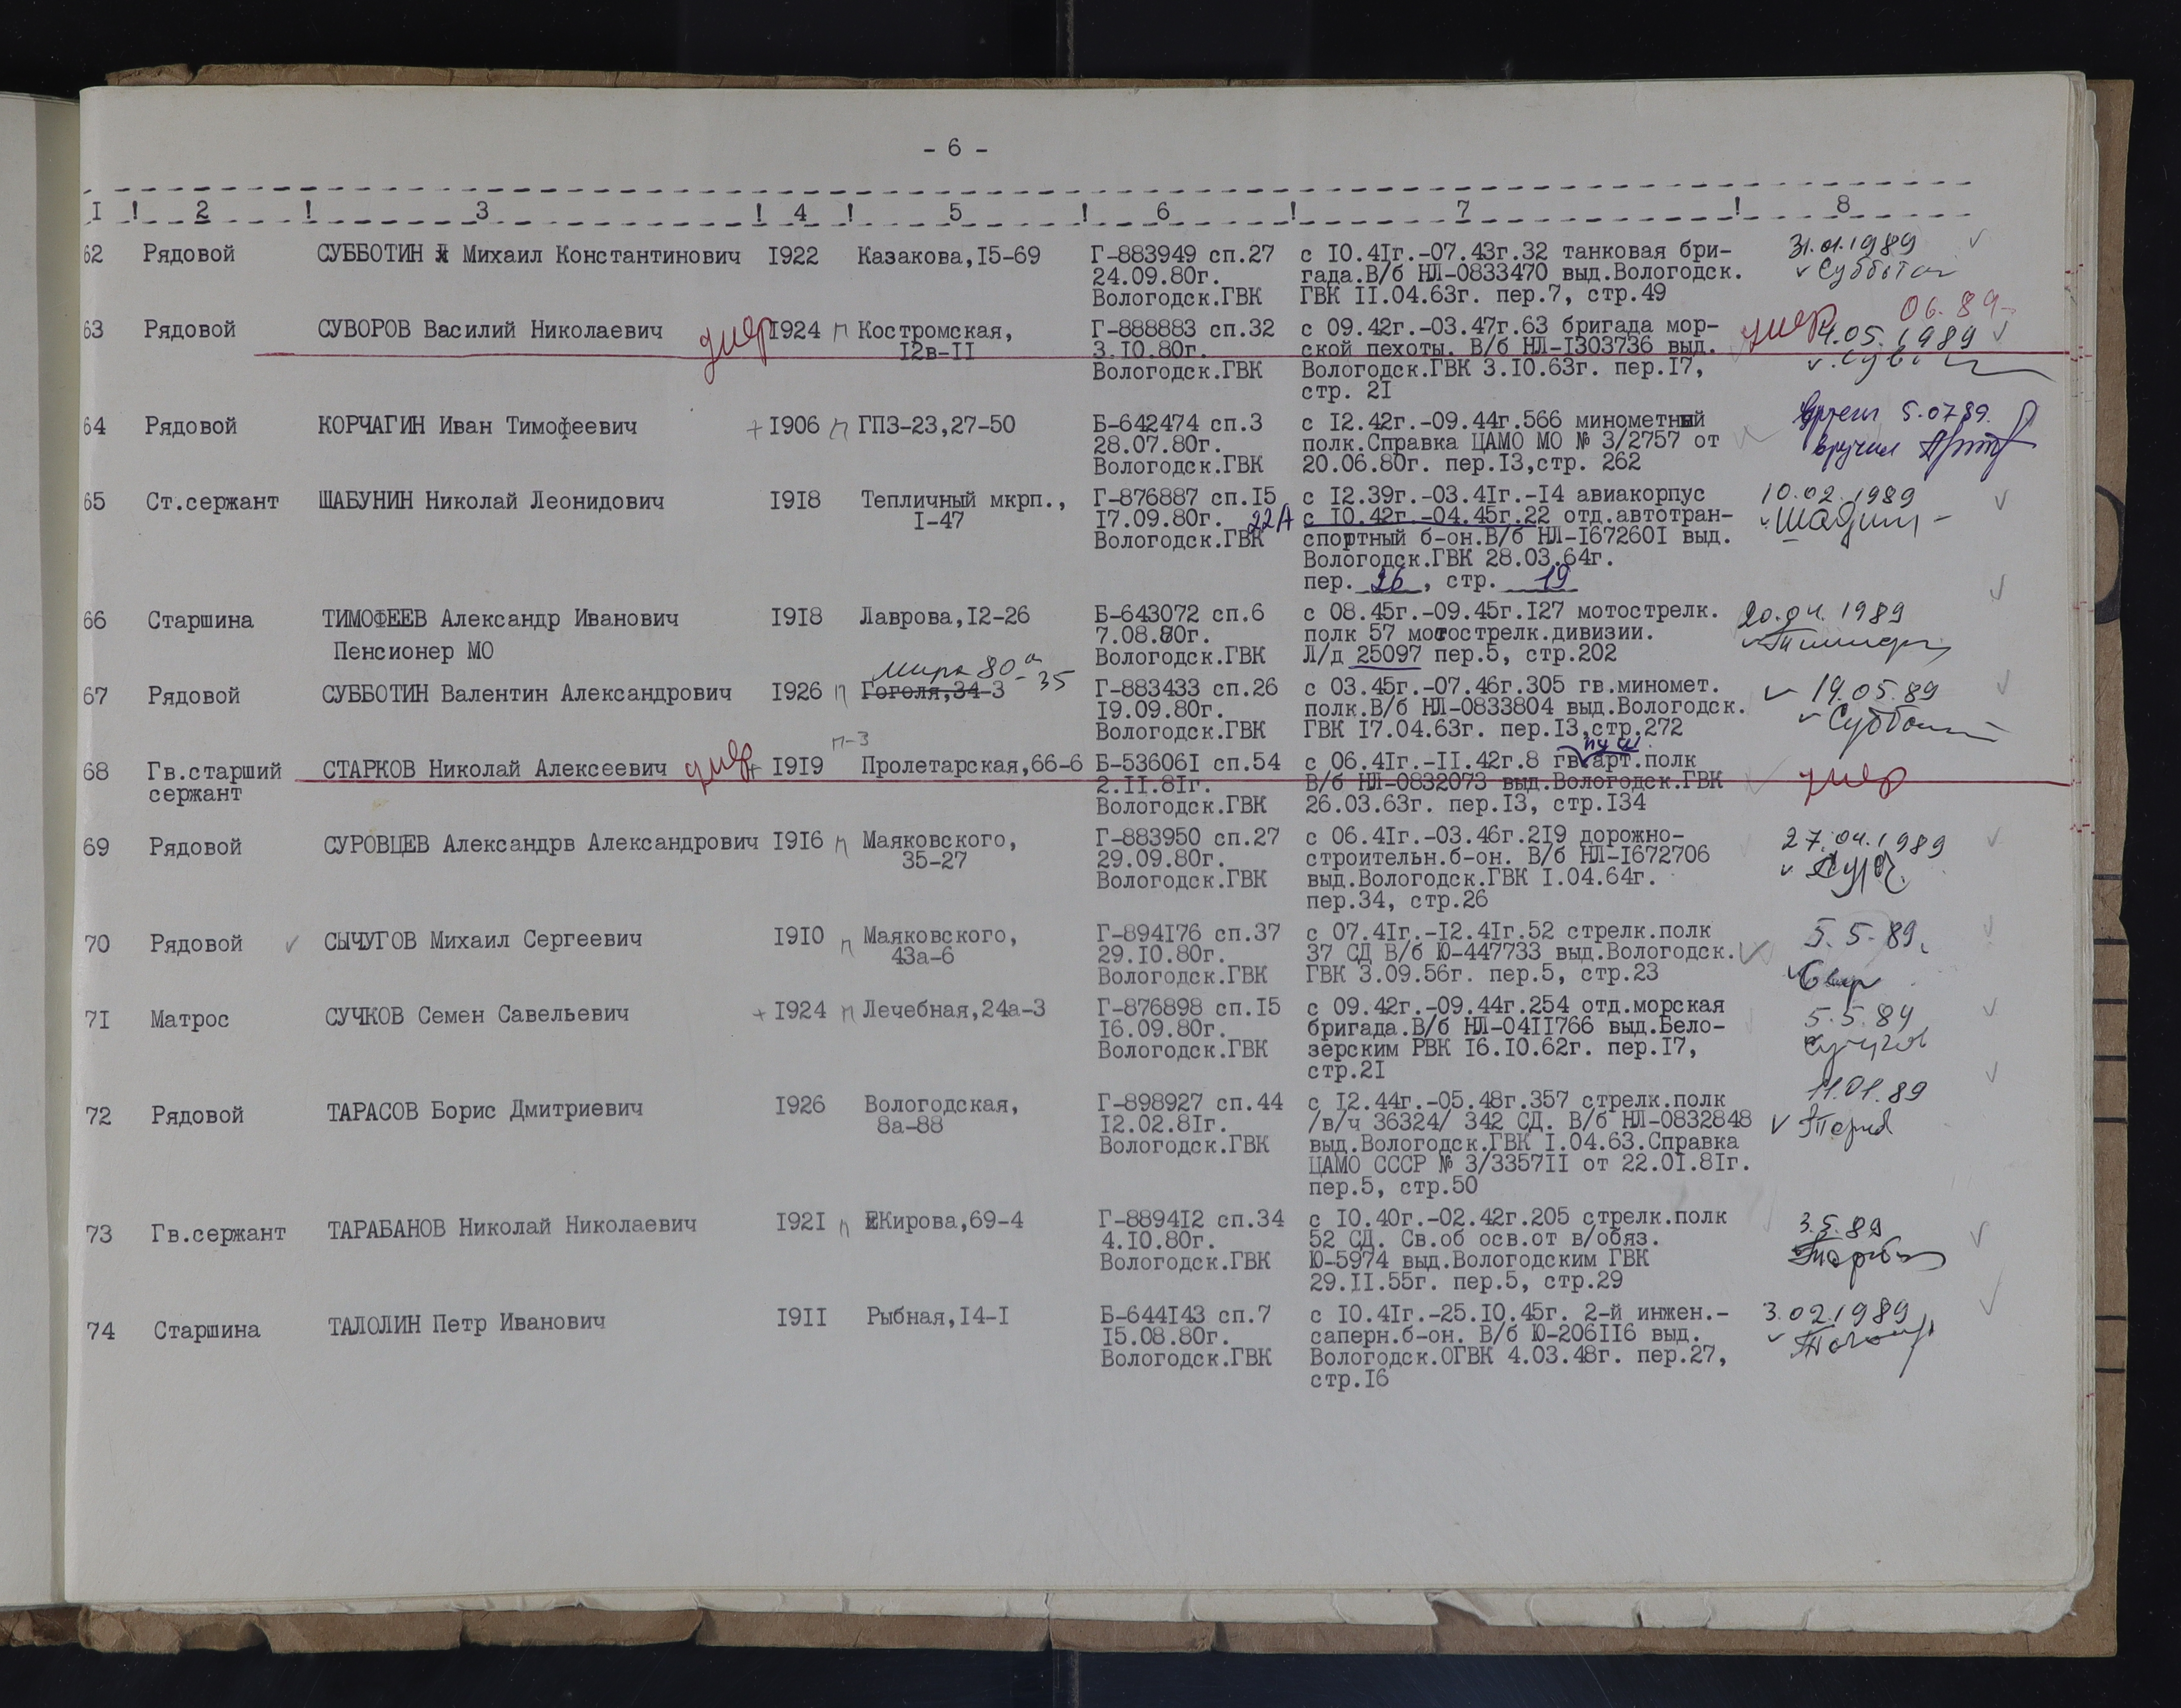 - 6 -
I ! 2 ! 3 ! 4 ! 5 ! 6 ! 7 ! 8
62 Рядовой СУББОТИН Михаил Константинович I922 Казакова,I5-69 Г-883949 сп.27 с I0.4Iг.-07.43г.32 танковая бри- 31.01.1989
24.09.80г. гада.В/б НЛ-0833470 выд.Вологодск. Субботин
Вологодск.ГВК ГВК II.04.63г. пер.7, стр.49
умер 06.89
63 Рядовой СУВОРОВ Василий Николаевич умер I924 п Костромская, Г-888883 сп.32 с 09.42г.-03.47г.63 бригада мор- 4.05.1989
I2в-II 3.I0.80г. ской пехоты. В/б НЛ-I303736 выд.
Вологодск.ГВК Вологодск.ГВК 3.I0.63г. пер.I7,
стр. 2I
64 Рядовой КОРЧАГИН Иван Тимофеевич + I906 п ГПЗ-23,27-50 Б-642474 сп.3 с I2.42г.-09.44г.566 минометный 5.07.89.
28.07.80г. полк.Справка ЦАМО МО № 3/2757 от вручил
Вологодск.ГВК 20.06.80г. пер.I3,стр. 262
65 Ст.сержант ШАБУНИН Николай Леонидович I9I8 Тепличный мкрп., Г-876887 сп.I5 с I2.39г.-03.4Iг.-I4 авиакорпус 10.02.1989
I-47 I7.09.80г. 22А с I0.42г.-04.45г.22 отд.автотран-
Вологодск.ГВК спортный б-он.В/б НЛ-I67260I выд.
Вологодск.ГВК 28.03.64г.
пер. 26, стр. 19
66 Старшина ТИМОФЕЕВ Александр Иванович I9I8 Лаврова,I2-26 Б-643072 сп.6 с 08.45г.-09.45г.I27 мотострелк. 20.04.1989
7.08.80г. полк 57 мотострелк.дивизии.
Пенсионер МО Вологодск.ГВК Л/д 25097 пер.5, стр.202
Мира 80а-35
67 Рядовой СУББОТИН Валентин Александрович I926 п Гоголя,34-3 Г-883433 сп.26 с 03.45г.-07.46г.305 гв.миномет. 19.05.89
I9.09.80г. полк.В/б НЛ-0833804 выд.Вологодск.
Вологодск.ГВК ГВК I7.04.63г. пер.I3,стр.272
п-3 пуш
68 Гв.старший СТАРКОВ Николай Алексеевич умер + I9I9 Пролетарская,66-6 Б-53606I сп.54 с 06.4Iг.-II.42г.8 гв.арт.полк умер
сержант 2.II.8Iг. В/б НЛ-0832073 выд.Вологодск.ГВК
Вологодск.ГВК 26.03.63г. пер.I3, стр.I34
69 Рядовой СУРОВЦЕВ Александрв Александрович I9I6 п Маяковского, Г-883950 сп.27 с 06.4Iг.-03.46г.2I9 дорожно- 27.04.1989
35-27 29.09.80г. строительн.б-он. В/б НЛ-I672706
Вологодск.ГВК выд.Вологодск.ГВК I.04.64г.
пер.34, стр.26
70 Рядовой СЫЧУГОВ Михаил Сергеевич I9I0 п Маяковского, Г-894I76 сп.37 с 07.4Iг.-I2.4Iг.52 стрелк.полк 5.5.89.
43а-6 29.I0.80г. 37 СД В/б Ю-447733 выд.Вологодск.
Вологодск.ГВК ГВК 3.09.56г. пер.5, стр.23
7I Матрос СУЧКОВ Семен Савельевич + I924 п Лечебная,24а-3 Г-876898 сп.I5 с 09.42г.-09.44г.254 отд.морская 5.5.89
I6.09.80г. бригада.В/б НЛ-04II766 выд.Бело-
Вологодск.ГВК зерским РВК I6.I0.62г. пер.I7,
стр.2I
72 Рядовой ТАРАСОВ Борис Дмитриевич I926 Вологодская, Г-898927 сп.44 с I2.44г.-05.48г.357 стрелк.полк 11.01.89
8а-88 I2.02.8Iг. /в/ч 36324/ 342 СД. В/б НЛ-0832848
Вологодск.ГВК выд.Вологодск.ГВК I.04.63.Справка
ЦАМО СССР № 3/3357II от 22.0I.8Iг.
пер.5, стр.50
73 Гв.сержант ТАРАБАНОВ Николай Николаевич I92I п Кирова,69-4 Г-8894I2 сп.34 с I0.40г.-02.42г.205 стрелк.полк 3.5.89
4.I0.80г. 52 СД. Св.об осв.от в/обяз.
Вологодск.ГВК Ю-5974 выд.Вологодским ГВК
29.II.55г. пер.5, стр.29
74 Старшина ТАЛОЛИН Петр Иванович I9II Рыбная,I4-I Б-644I43 сп.7 с I0.4Iг.-25.I0.45г. 2-й инжен.- 3.02.1989
I5.08.80г. саперн.б-он. В/б Ю-206II6 выд.
Вологодск.ГВК Вологодск.ОГВК 4.03.48г. пер.27,
стр.I6